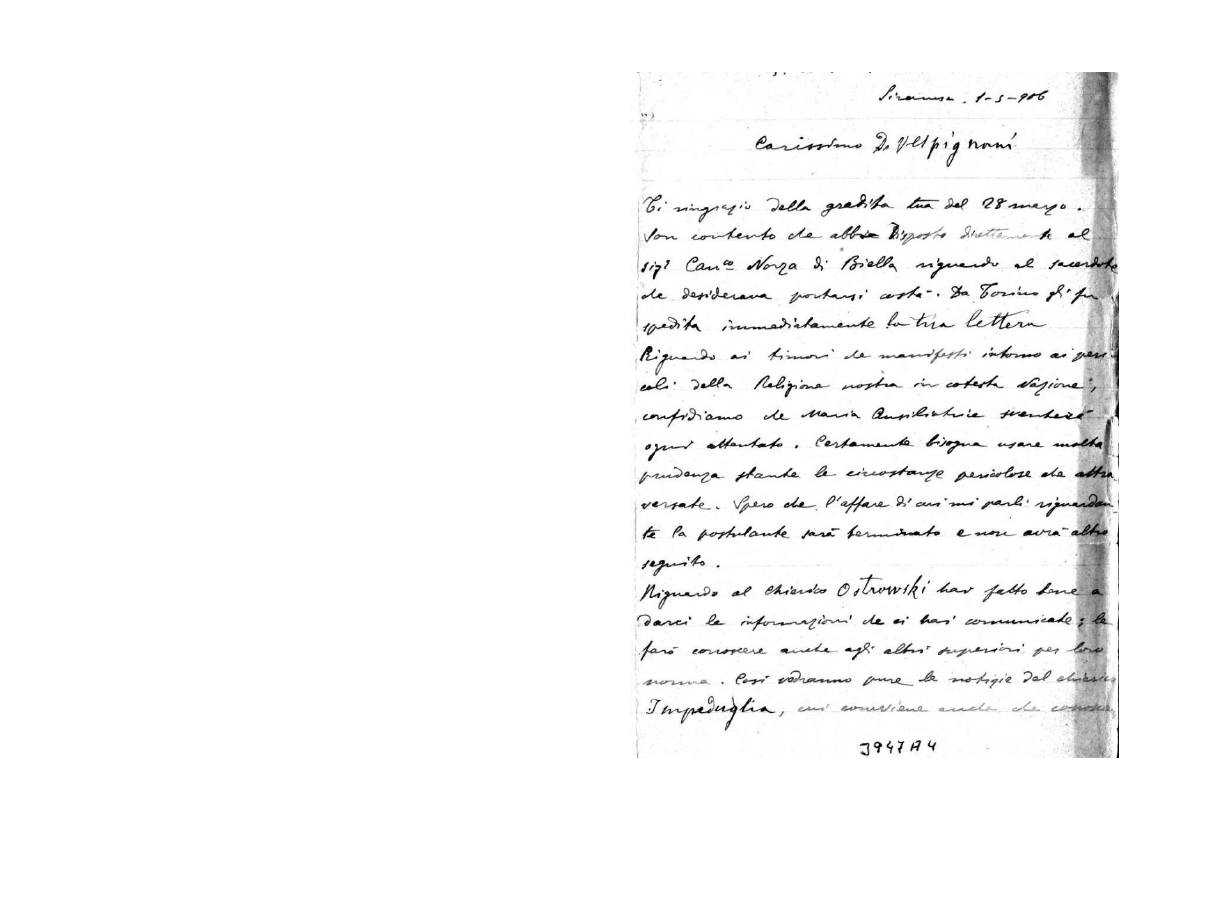 Siracusa. 1-5-906
Carissimo D. Vespignani
Ti ringrazio della gradita tua del 28 marzo.
Son contento che abbia disposto direttamente al
sigr Canco Norza di Biella riguardo al sacerdote
che desiderava portarsi costà. Da Torino gli fu
spedita immediatamente la tua lettera
Riguardo ai timori che manifesti intorno ai peri
coli della Religione nostra in cotesta Nazione,
confidiamo che Maria Ausiliatrice sventerà
ogni attentato. Certamente bisogna usare molta
prudenza stante le circostanze pericolose che attra
versate. Spero che l'affare di cui mi parli riguardan
te la postulante sarà terminato e non avrà altro
seguito.
Riguardo al chierico Ostrowski hai fatto bene a
darci le informazioni che ci hai comunicate; le
farò conoscere anche agli altri superiori per loro
norma. Così vedranno pure le notizie del chierico
Impeduglia, cui conviene anche che
3947A4